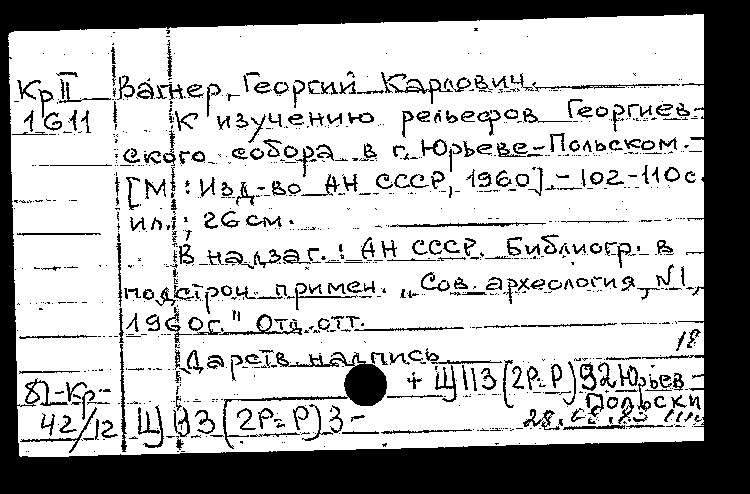 Кр II Вагнер, Георгий Карлович.
1611 К изучению рельефов Георгиев-
ского собора в г. Юрьеве-Польском. –
[М.: Изд-во АН СССР, 1960]. – 102-110 с.
ил.; 26 см.
В надзаг.: АН СССР. Библиогр. в
подстроч. примеч. „Сов. археология, N1,
1960г." Отд. отт.
18
Дарств. надпись.
81-Кр- + Щ113(2Р=Р)92Юрьев-
Польски
42/12 Щ 3(2Р=Р)3-
28. 83